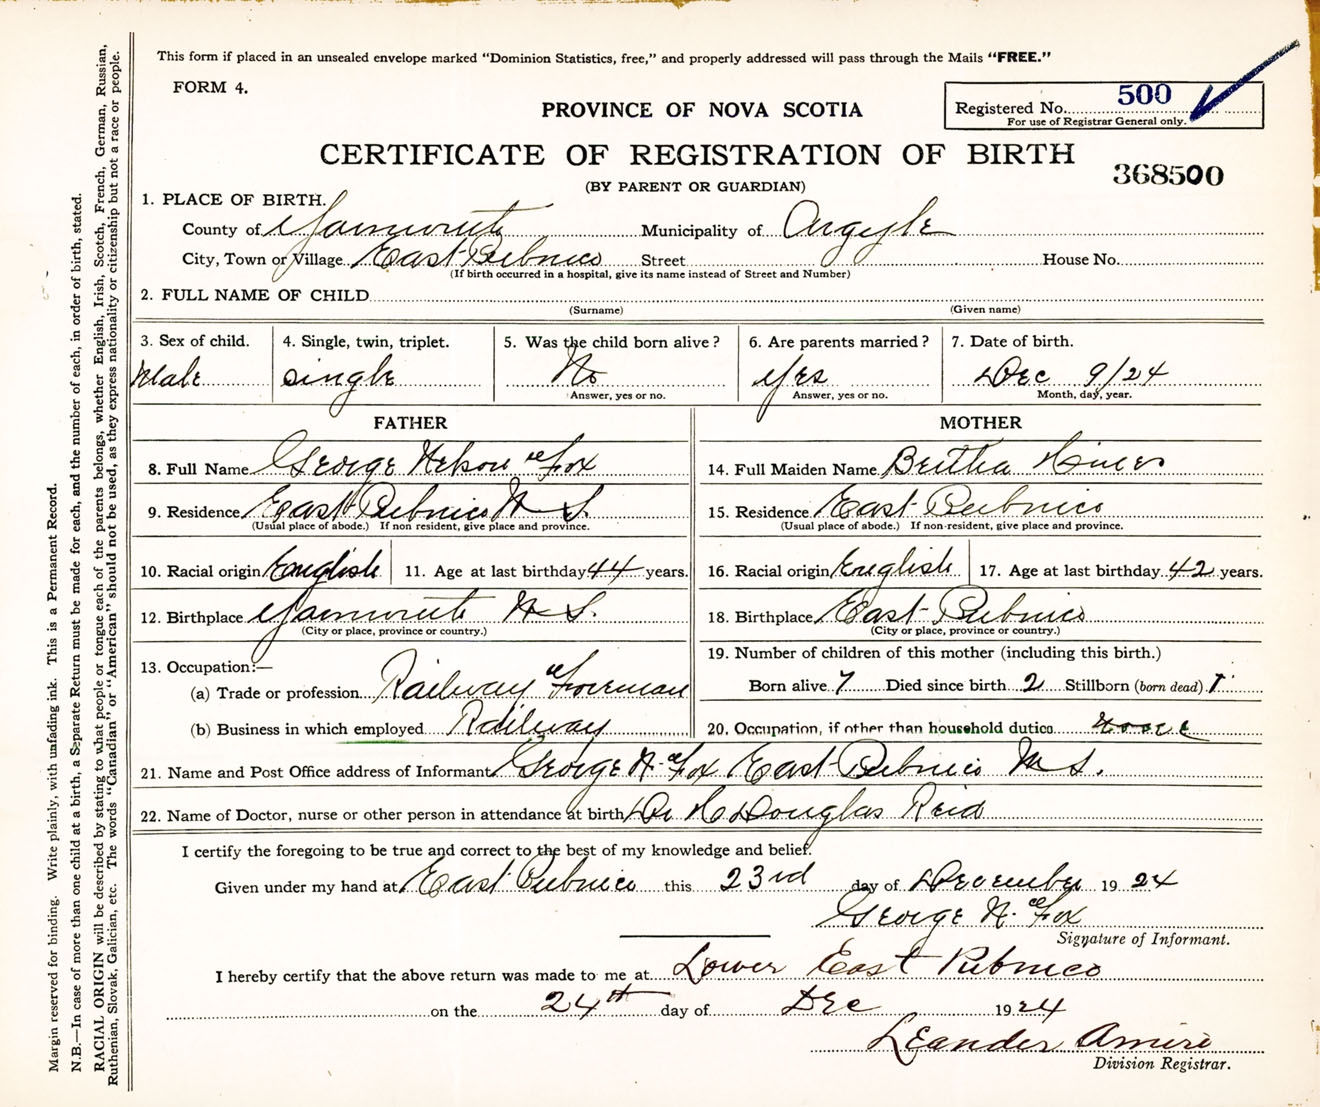 This form if placed in an unsealed envelope marked "Dominion Statistics, free," and properly addressed will pass through the Mails "FREE."
FORM 4.
PROVINCE OF NOVA SCOTIA
Registered No. 500
For use of Registrar General only.
CERTIFICATE OF REGISTRATION OF BIRTH
368500
(BY PARENT OR GUARDIAN)
1. PLACE OF BIRTH.
County of Yarmouth Municipality of Argyle
City, Town or Village East Pubnico Street House No.
(If birth occurred in a hospital, give its name instead of Street and Number)
2. FULL NAME OF CHILD
(Surname) (Given name)
3. Sex of child. 4. Single, twin, triplet. 5. Was the child born alive? 6. Are parents married? 7. Date of birth.
Male single No Yes Dec 9/24
Answer, yes or no. Answer, yes or no. Month, day, year.
FATHER MOTHER
8. Full Name George Nelson Fox 14. Full Maiden Name Bertha Hines
9. Residence East Pubnico N S. 15. Residence East Pubnico
(Usual place of abode.) If non resident, give place and province. (Usual place of abode.) If non-resident, give place and province.
10. Racial origin English 11. Age at last birthday 44 years. 16. Racial origin English 17. Age at last birthday 42 years.
12. Birthplace Yarmouth N S. 18. Birthplace East Pubnico
(City or place, province or country.) (City or place, province or country.)
13. Occupation:— 19. Number of children of this mother (including this birth.)
(a) Trade or profession Railway Foreman Born alive 7 Died since birth 2 Stillborn (born dead) 1
(b) Business in which employed Railway 20. Occupation, if other than household duties none
21. Name and Post Office address of Informant George N. Fox East Pubnico N S.
22. Name of Doctor, nurse or other person in attendance at birth Dr H Douglas Reid
I certify the foregoing to be true and correct to the best of my knowledge and belief.
Given under my hand at East Pubnico this 23rd day of December 1924
George N. Fox
Signature of Informant.
I hereby certify that the above return was made to me at Lower East Pubnico
on the 24th day of Dec 1924
Leander Amiro
Division Registrar.
Margin reserved for binding. Write plainly, with unfading ink. This is a Permanent Record.
N.B.—In case of more than one child at a birth, a Separate Return must be made for each, and the number of each, in order of birth, stated.
RACIAL ORIGIN will be described by stating to what people or tongue each of the parents belongs, whether English, Irish, Scotch, French, German, Russian,
Ruthenian, Slovak, Galician, etc. The words "Canadian" or "American" should not be used, as they express nationality or citizenship but not a race or people.